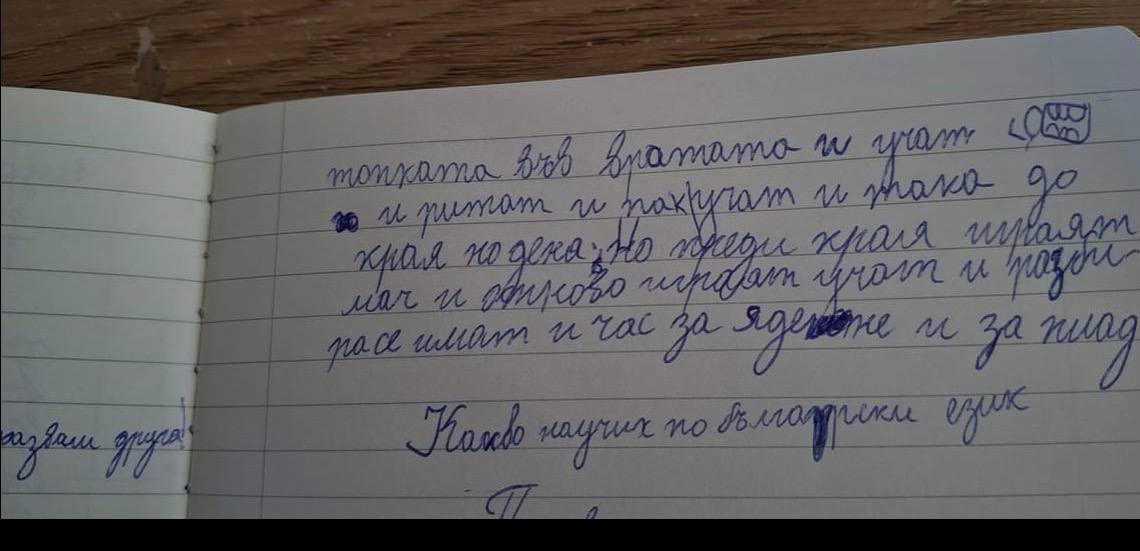 топката във вратата и учат
и ритат и пак учат и така до
края на дена; Но преди края играят
мач и отново играят учат и разби-
ра се имат и час за ядене и за хлад
развам друга!
Какво научих по български език